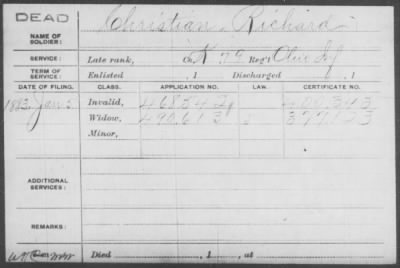 DEAD
NAME OF SOLDIER: Christian, Richard
SERVICE: Late rank, Co. K 79 Reg't Ohio Inf
TERM OF SERVICE: Enlisted , 1 Discharged , 1
DATE OF FILING. CLASS. APPLICATION NO. LAW. CERTIFICATE NO.
1883 Jan 5 Invalid, 468.542 400.343
Widow, 490.613
Minor,
ADDITIONAL SERVICES:
REMARKS:
Died , 1 , at